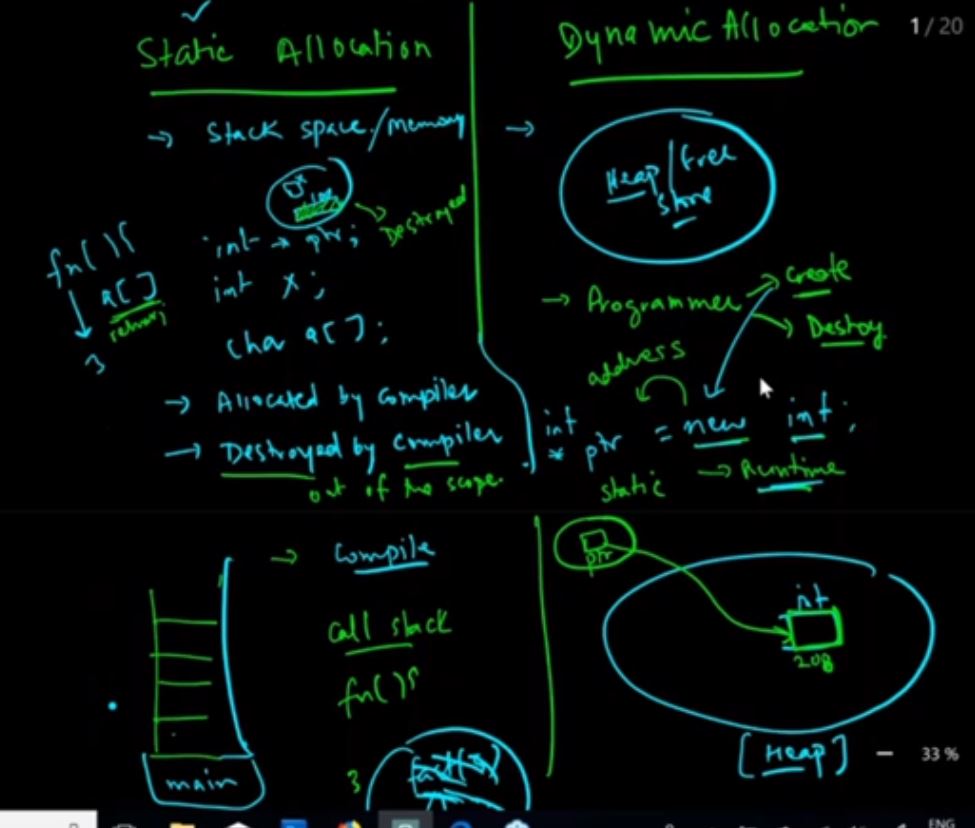 Static Allocation
→ Stack space/memory
Destroyed
fn(){
a[]
return;
}
int * ptr;
int x;
char a[];
→ Allocated by Compiler
→ Destroyed by Compiler
out of the scope.
Dynamic Allocation
1/20
→ Heap/Free
Store
→ Programmer
→ Create
→ Destroy
address
int
* ptr = new int;
static → Runtime
→ Compile
call stack
fn(){
}
main
ptr
int
208
[Heap]
33 %
ENG